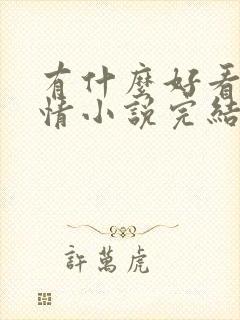 有什麼好看
情小說完結
許萬虎